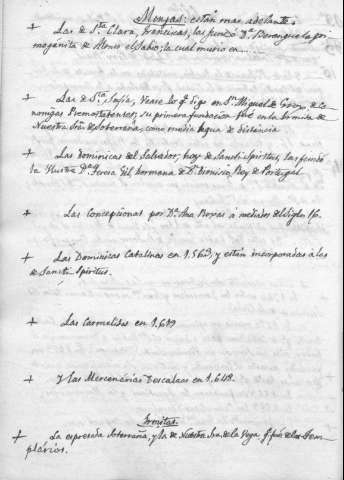 Monjas: están mas adelante.
+ Las de Sta. Clara, francisas, las fundó Da. Berenguela pri-
mogenita de Alonso el Sabio; la cual murio en....
+ Las de Sta. Sofía, Vease lo q. digo en Sn. Miguel de Groz, de Ca-
nonigas Premostratenses; su primera fundacion fué en la hermita de
Nuestra Sra. de Soterraña, como media legua de distancia
+ Las Dominicas del Salvador, hoy de Sancti Spiritus, las fundó
la Ilustre Da. Teresa Gil, hermana de Dn. Dionisio, Rey de Portugal
+ Las Concepcionas por Da. Ana Boxas á mediados del Siglo 16.
+ Las Dominicas Catalinas en 1.563, y están incorporadas á las
de Sancti Spiritus.
+ Las Carmelitas en 1.619
+ Y las Mercenarias Descalzas en 1.648.
Ermitas.
+ La espresada Soterraña, y la de Nuestra Sra. de la Vega q. fué de los Tem-
plarios.